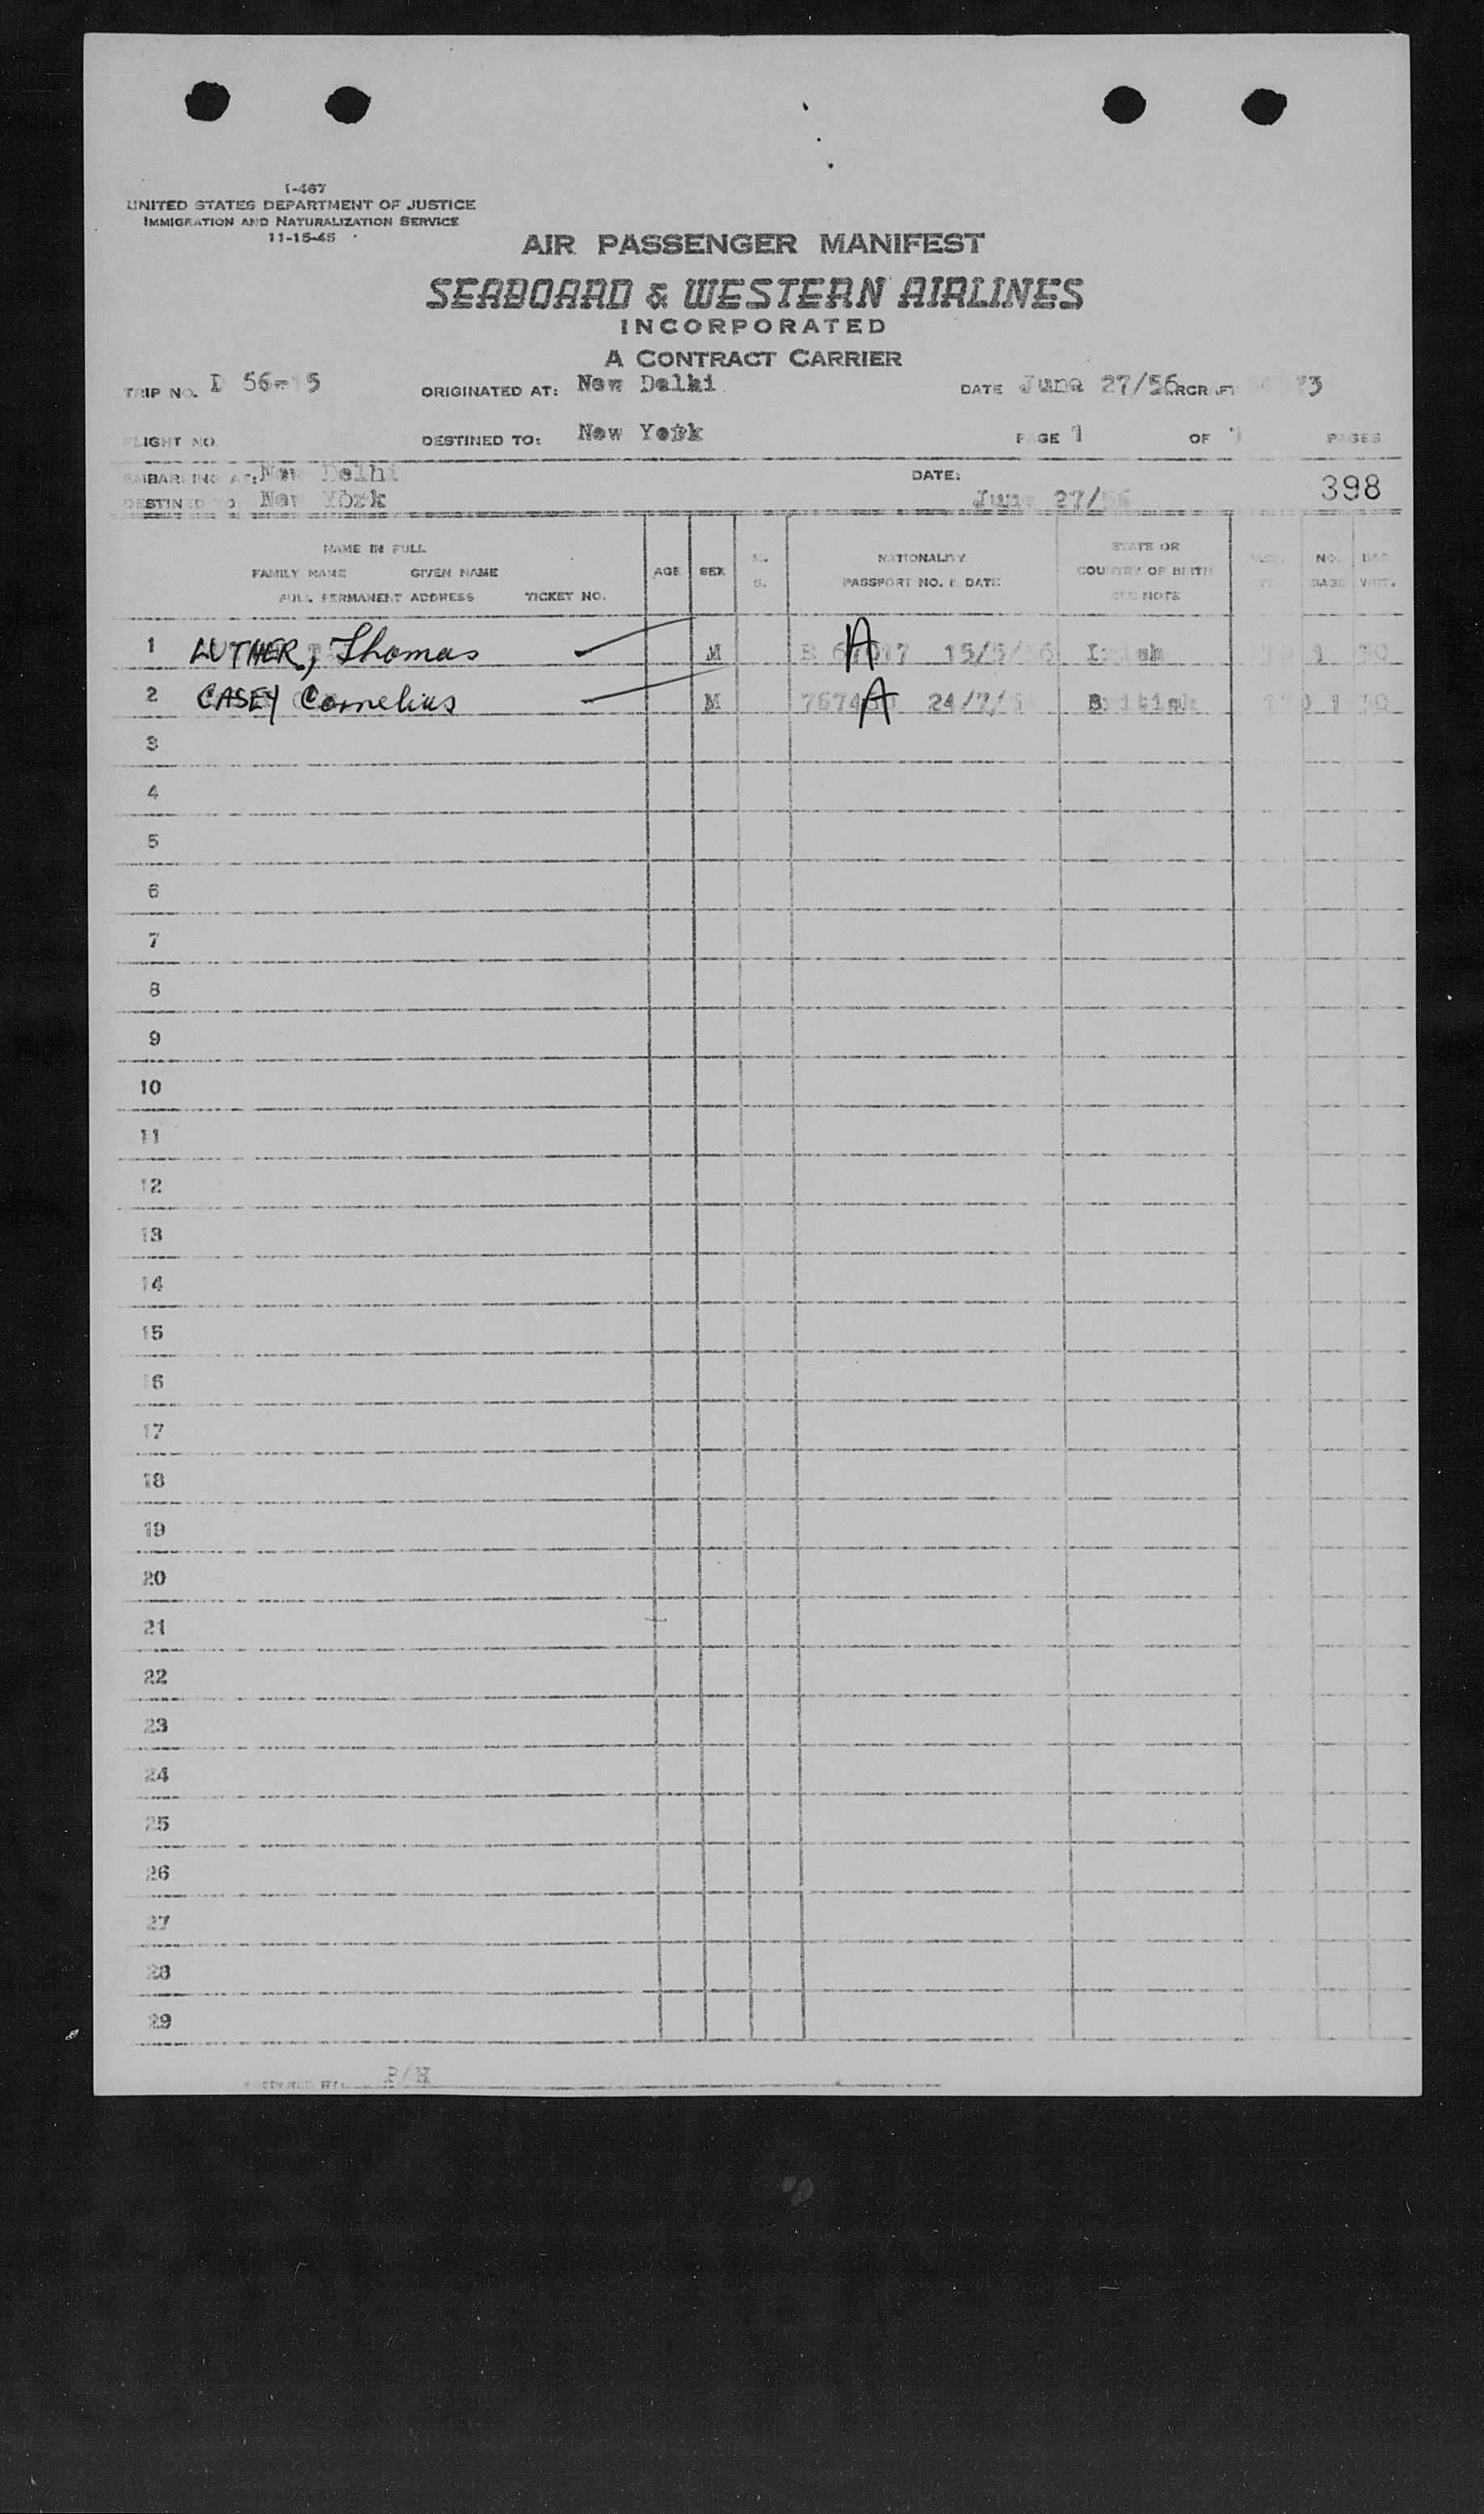 I-467
UNITED STATES DEPARTMENT OF JUSTICE
IMMIGRATION AND NATURALIZATION SERVICE
11-15-45
AIR PASSENGER MANIFEST
SEABOARD & WESTERN AIRLINES
INCORPORATED
A CONTRACT CARRIER
TRIP NO. D 56-15 ORIGINATED AT: New Delhi DATE June 27/56
FLIGHT NO. DESTINED TO: New York PAGE 1 OF 1 PAGES
EMBARKING AT: New Delhi DATE:
DESTINED TO New York June 27/56 398
NAME IN FULL STATE OR
FAMILY NAME GIVEN NAME AGE SEX M. NATIONALITY COUNTRY OF BIRTH NO.
FULL PERMANENT ADDRESS TICKET NO. S. PASSPORT NO. & DATE SEE NOTE
1 LUTHER, Thomas M A 15/5/56 Irish 1
2 CASEY Cornelius M A 24/7/ British 1
3
4
5
6
7
8
9
10
11
12
13
14
15
16
17
18
19
20
21
22
23
24
25
26
27
28
29
P/H